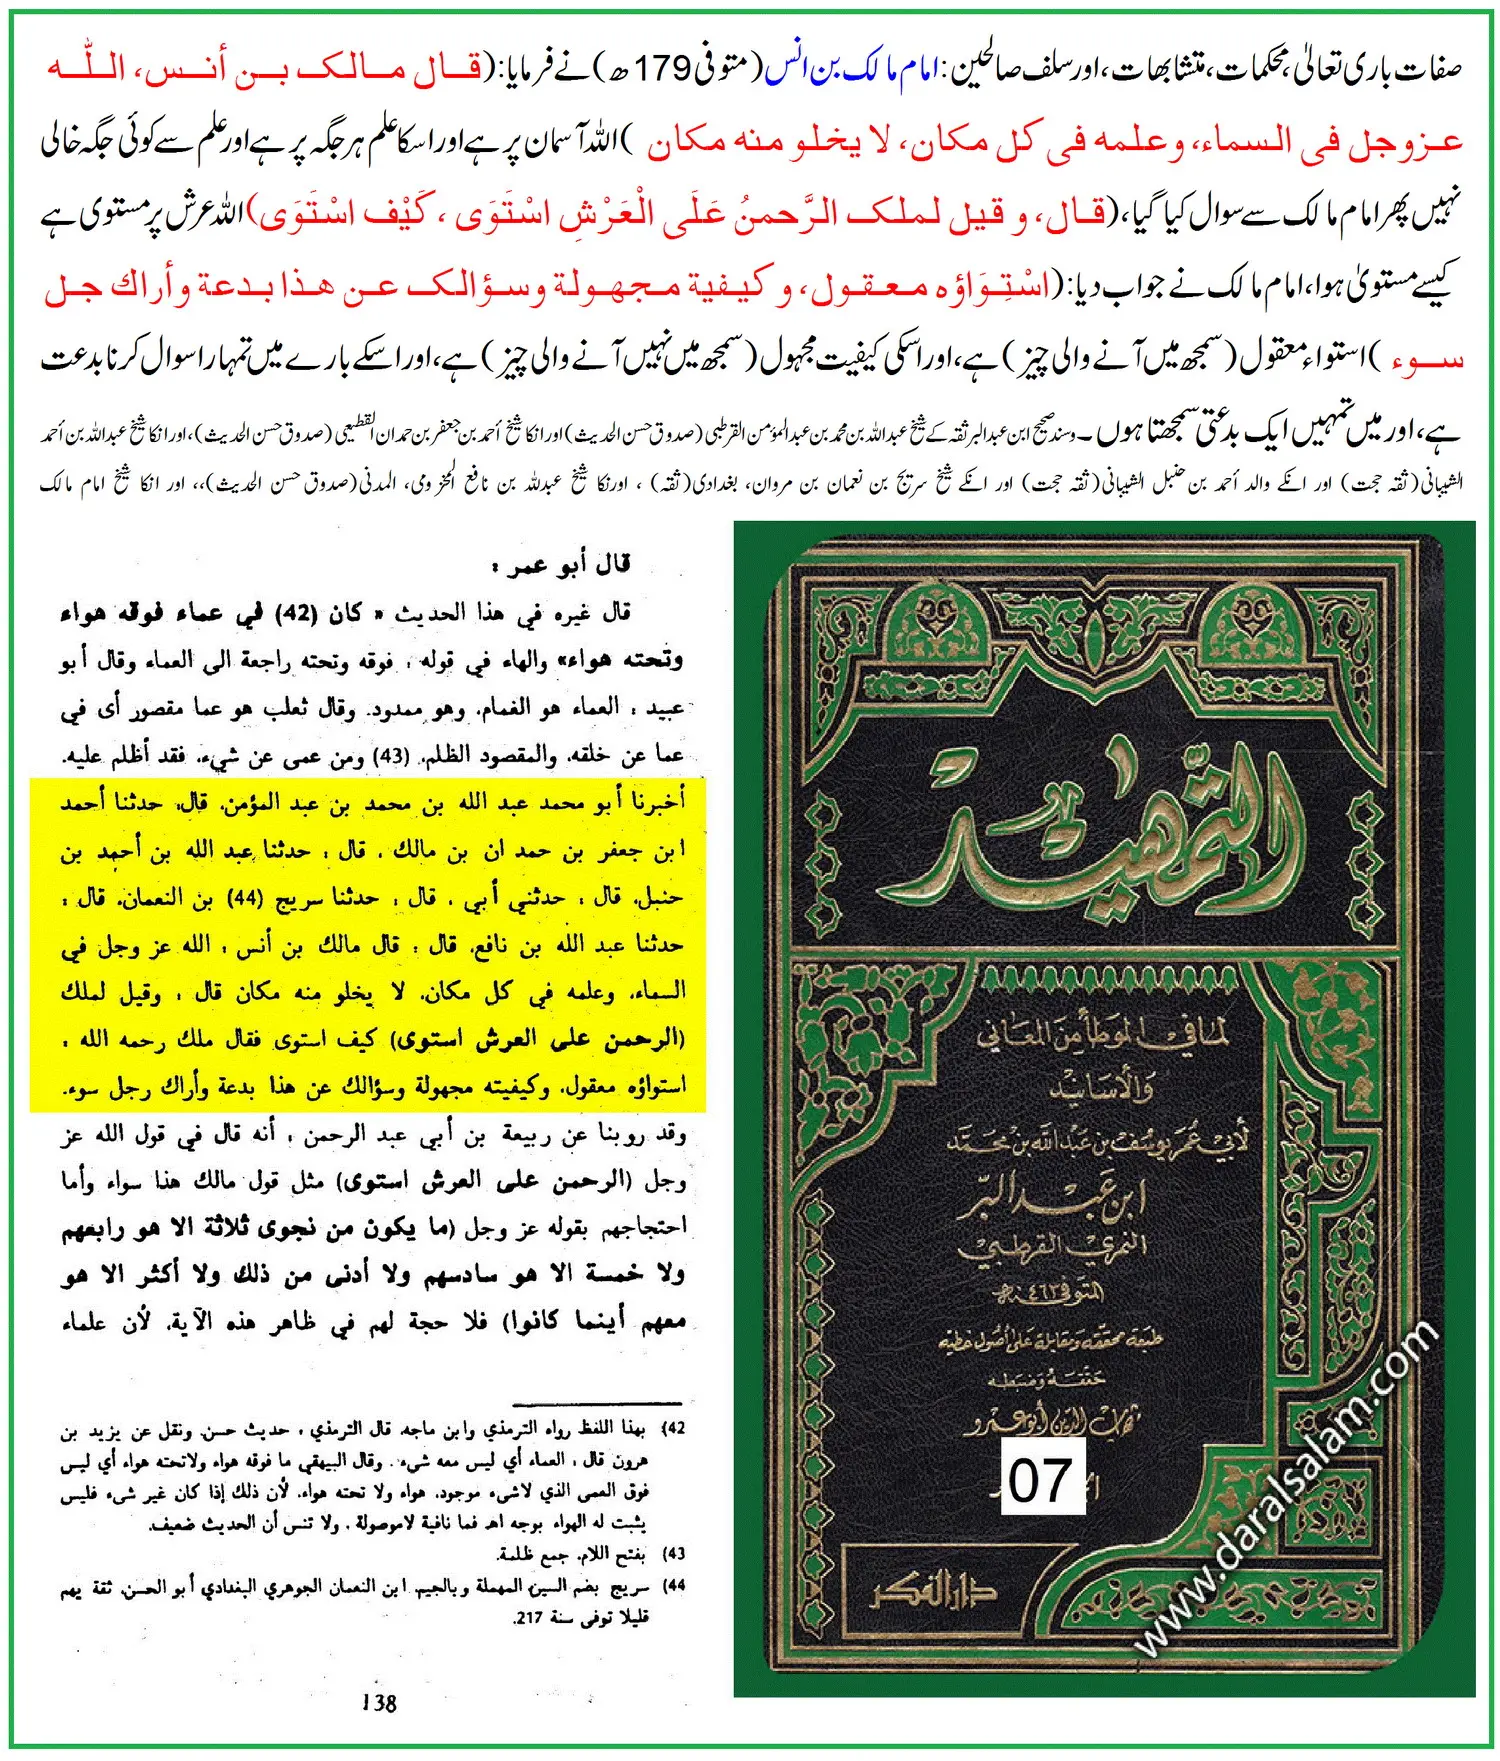 صفات باری تعالیٰ، محکمات، متشابھات، اور سلف صالحین: امام مالک بن انس (متوفی 179ھ) نے فرمایا: (قال مالک بن أنس، اللّٰه
عزوجل فى السماء، وعلمه فى كل مكان، لا يخلو منه مكان ) اللہ آسمان پر ہے اور اسکا علم ہر جگہ پر ہے اور علم سے کوئی جگہ خالی
نہیں پھر امام مالک سے سوال کیا گیا، (قال، و قيل لملک الرَّحمنُ عَلَى الْعَرْشِ اسْتَوَى ، كَيْف اسْتَوَى) اللہ عرش پر مستوی ہے
کیسے مستویٰ ہوا، امام مالک نے جواب دیا: (اسْتِوَاؤه معقول، و كيفية مجهولة وسؤالک عن هذا بدعة وأراك جل
سوء ) استواء معقول (سمجھ میں آنے والی چیز) ہے، اور اسکی کیفیت مجہول (سمجھ میں نہیں آنے والی چیز) ہے، اور اسکے بارے میں تمہارا سوال کرنا بدعت
ہے، اور میں تمہیں ایک بدعتی سمجھتا ہوں۔ وسند صحیح ابن عبدالبر ثقہ کے شیخ عبداللہ بن محمد بن عبدالمؤمن القرطبی (صدوق حسن الحدیث) اور انکا شیخ أحمد بن جعفر بن حمدان القطیعی (صدوق حسن الحدیث)، اور انکا شیخ عبداللہ بن أحمد
الشیبانی (ثقہ حجت) اور انکے والد أحمد بن حنبل الشیبانی (ثقہ حجت) اور انکے شیخ سریج بن نعمان بن مروان، بغدادی (ثقہ) ، اورنکا شیخ عبدللہ بن نافع المخزومی، المدنی (صدوق حسن الحدیث)،، اور انکا شیخ امام مالک
قال أبو عمر :
قال غيره في هذا الحديث « كان (42) في عماء فوقه هواء
وتحته هواء» والهاء في قوله : فوقه وتحته راجعة الى العماء وقال أبو
عبيد : العماء هو الغمام، وهو ممدود. وقال ثعلب هو عما مقصور أى في
عما عن خلقه، والمقصود الظلم، (43) ومن عمى عن شيء، فقد أظلم عليه.
أخبرنا أبو محمد عبد الله بن محمد بن عبد المؤمن، قال: حدثنا أحمد
ابن جعفر بن حمد ان بن مالك ، قال : حدثنا عبد الله بن أحمد بن
حنبل، قال : حدثني أبي ، قال : حدثنا سريج (44) بن النعمان، قال :
حدثنا عبد الله بن نافع، قال : قال مالك بن أنس : الله عز وجل في
السماء، وعلمه في كل مكان، لا يخلو منه مكان قال : وقيل لملك
(الرحمن على العرش استوى) كيف استوى فقال ملك رحمه الله :
استواؤه معقول، وكيفيته مجهولة وسؤالك عن هذا بدعة وأراك رجل سوء.
وقد روينا عن ربيعة بن أبي عبد الرحمن : أنه قال في قول الله عز
وجل (الرحمن على العرش استوى) مثل قول مالك هذا سواء وأما
احتجاجهم بقوله عز وجل (ما يكون من نجوى ثلاثة الا هو رابعهم
ولا خمسة الا هو سادسهم ولا أدنى من ذلك ولا أكثر الا هو
معهم أينما كانوا) فلا حجة لهم في ظاهر هذه الآية، لأن علماء
42) بهذا اللفظ رواه الترمذي وابن ماجه، قال الترمذي : حديث حسن، ونقل عن يزيد بن
هرون قال : العماء أي ليس معه شيء. وقال البيهقي ما فوقه هواء ولاتحته هواء أي ليس
فوق العمى الذي لاشيء موجود، هواء ولا تحته هواء، لأن ذلك إذا كان غير شيء فليس
يثبت له الهواء بوجه اهـ فما نافية لاموصولة ، ولا تنس أن الحديث ضعيف.
43) بفتح اللام، جمع ظلمة.
44) سريج بضم السين المهملة وبالجيم، ابن النعمان الجوهري البغدادي أبو الحسن، ثقة يهم
قليلا توفى سنة 217.
138
التمهيد
لما في الموطأ من المعاني
والأسانيد
لأبي عمر يوسف بن عبد الله بن محمد
ابن عبد البر
النمري القرطبي
المتوفى ٤٦٣هـ
طبعة محققة ومقابلة على أصول خطية
حققه وضبطه
شهاب الدين أبو عمرو
07
دار الفكر
www.daralsalam.com